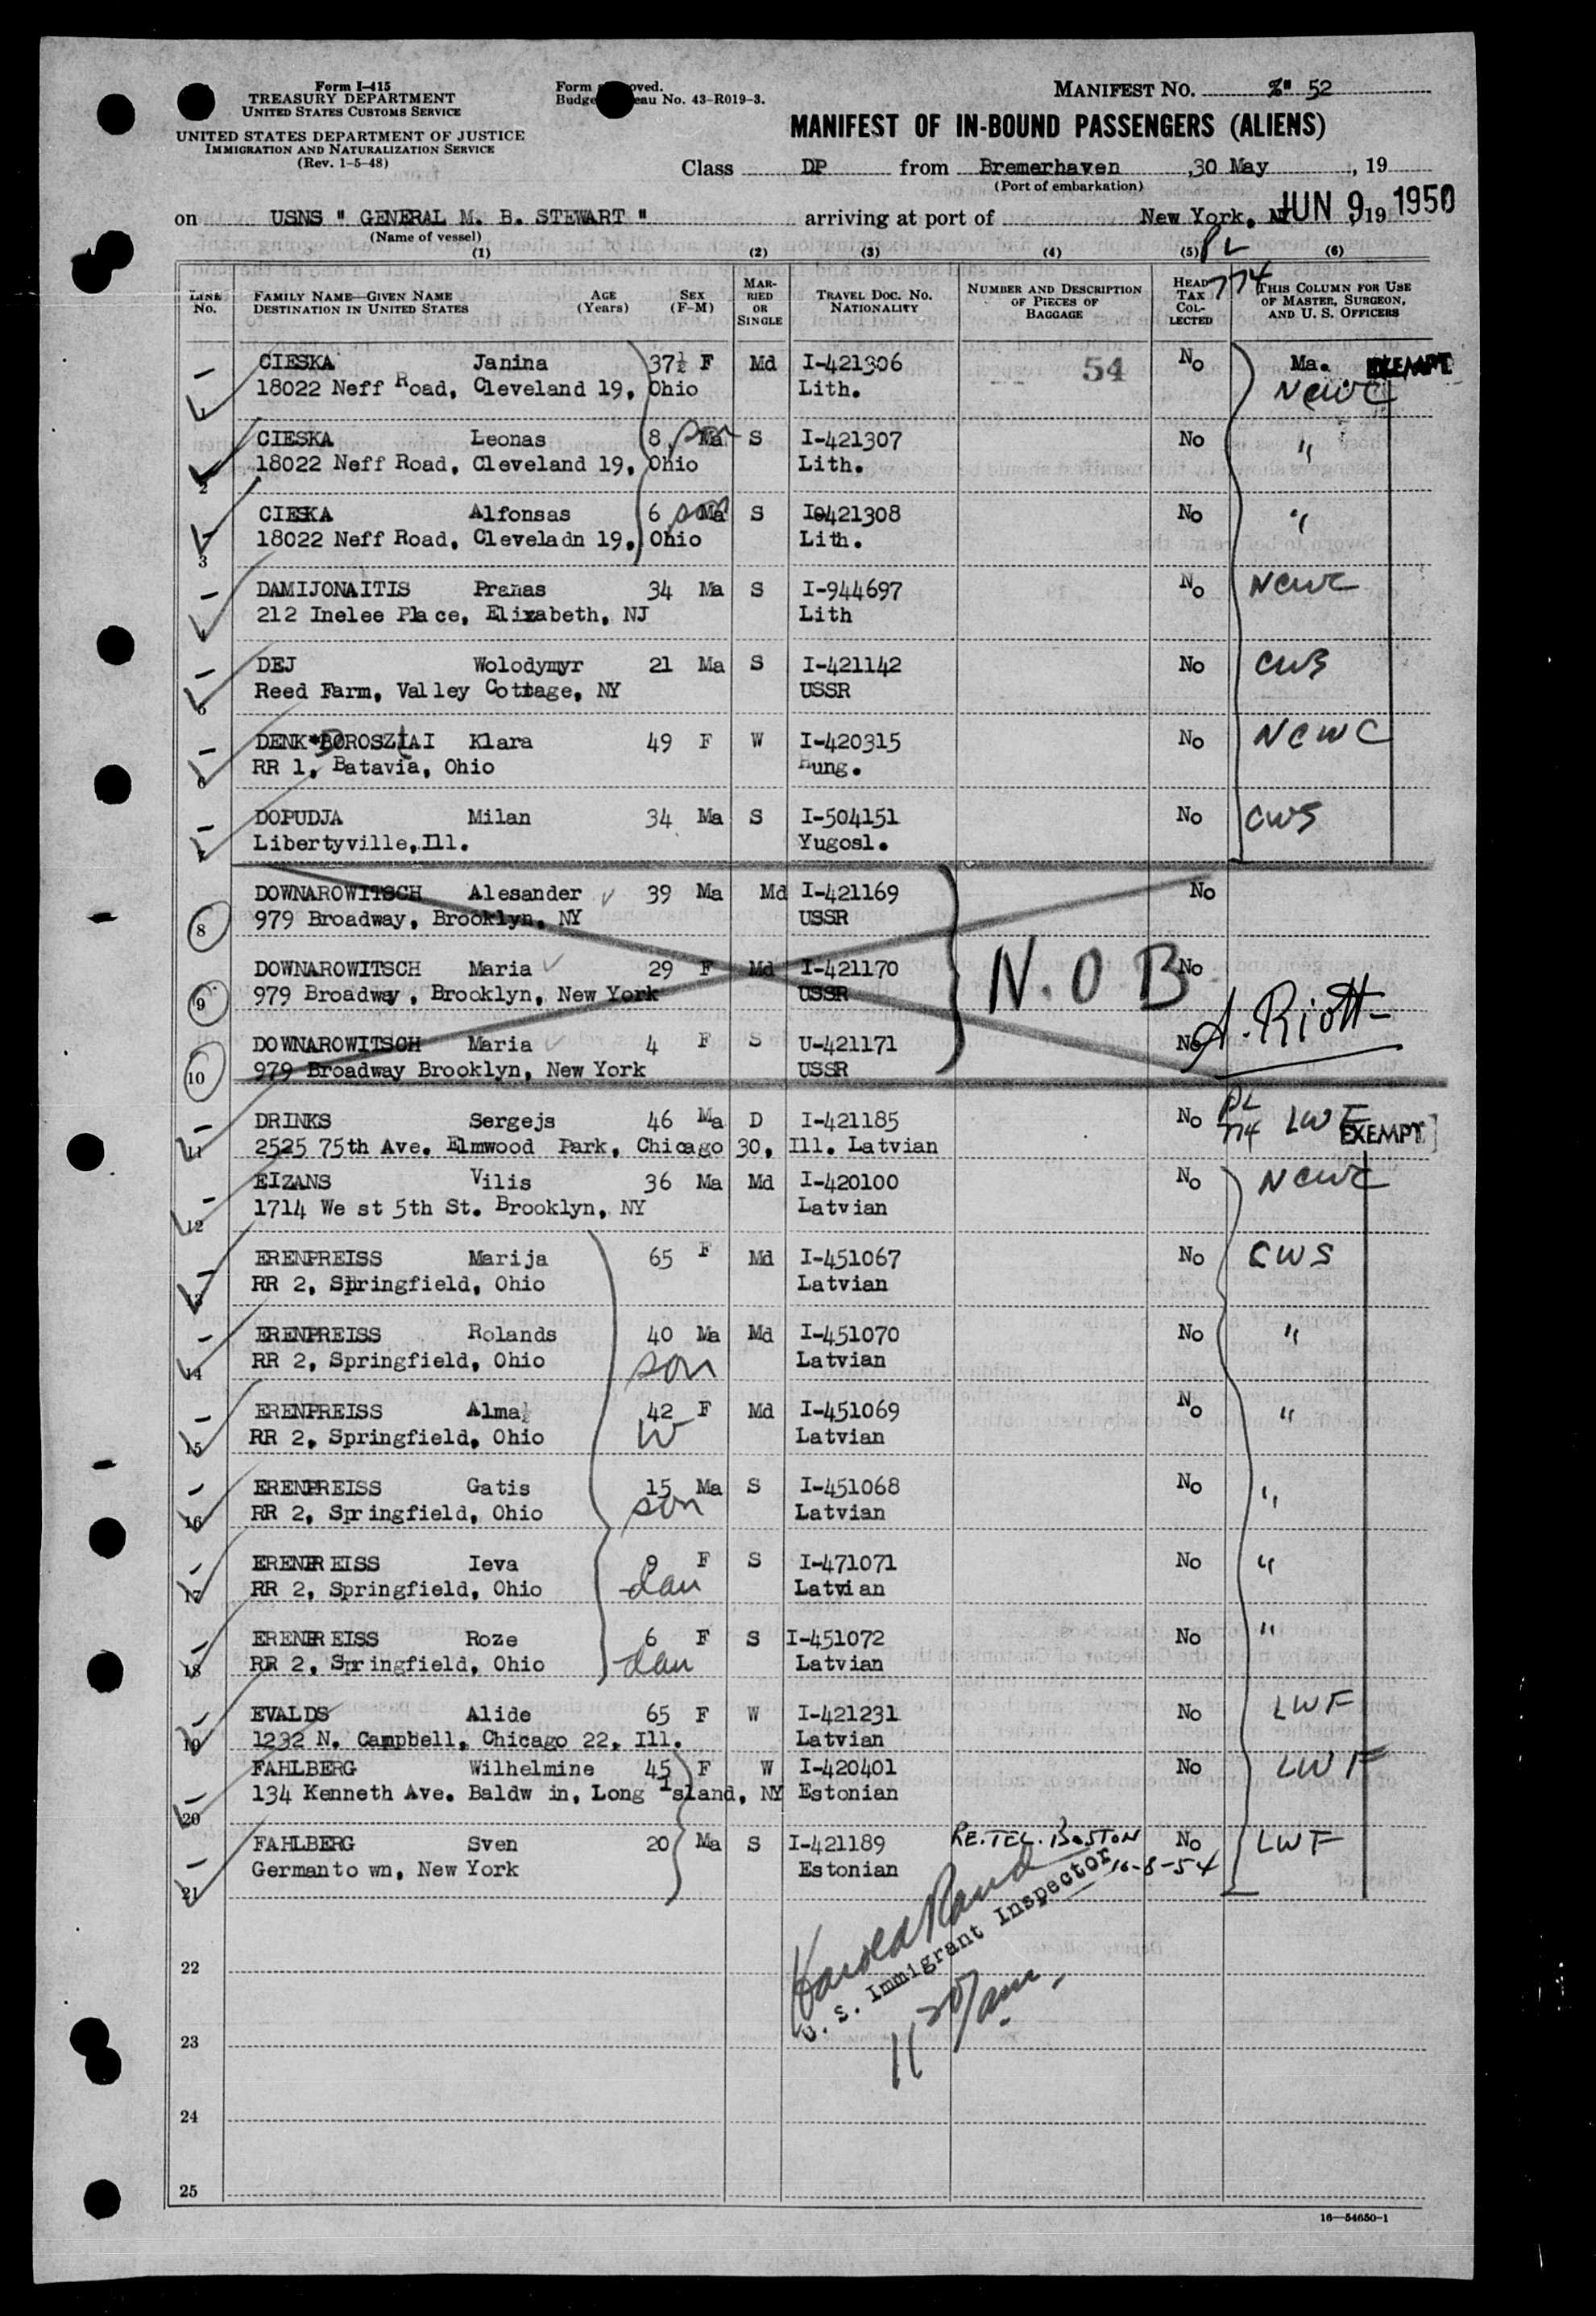 Form I-415
TREASURY DEPARTMENT
UNITED STATES CUSTOMS SERVICE
UNITED STATES DEPARTMENT OF JUSTICE
IMMIGRATION AND NATURALIZATION SERVICE
(Rev. 1-5-48)
Form oved.
Budge eau No. 43-R019-3.
MANIFEST NO. 52
MANIFEST OF IN-BOUND PASSENGERS (ALIENS)
Class DP from Bremerhaven ,30 May , 19
(Port of embarkation)
on USNS " GENERAL M. B. STEWART " arriving at port of New York, NY JUN 9 19 1950
(Name of vessel)
(1) (2) (3) (4) (5) (6)
PL 774
LINE No. FAMILY NAME—GIVEN NAME DESTINATION IN UNITED STATES AGE (Years) SEX (F-M) MARRIED OR SINGLE TRAVEL DOC. NO. NATIONALITY NUMBER AND DESCRIPTION OF PIECES OF BAGGAGE HEAD TAX COLLECTED THIS COLUMN FOR USE OF MASTER, SURGEON, AND U. S. OFFICERS
1 CIESKA Janina 37½ F Md I-421306 54 No Ma. EXEMPT
18022 Neff Road, Cleveland 19, Ohio Lith. NCWC
2 CIESKA Leonas 8 Ma son S I-421307 No "
18022 Neff Road, Cleveland 19, Ohio Lith.
3 CIESKA Alfonsas 6 Ma son S I0421308 No "
18022 Neff Road, Cleveladn 19, Ohio Lith.
4 DAMIJONAITIS Pranas 34 Ma S I-944697 No NCWC
212 Inelee Place, Elizabeth, NJ Lith
5 DEJ Wolodymyr 21 Ma S I-421142 No CWS
Reed Farm, Valley Cottage, NY USSR
6 DENK*BOROSZLAI Klara 49 F W I-420315 No NCWC
RR 1, Batavia, Ohio Hung.
7 DOPUDJA Milan 34 Ma S I-504151 No CWS
Libertyville,Ill. Yugosl.
8 DOWNAROWITSCH Alesander 39 Ma Md I-421169 No
979 Broadway, Brooklyn, NY USSR
9 DOWNAROWITSCH Maria 29 F Md I-421170 N.O B No
979 Broadway , Brooklyn, New York USSR
10 DOWNAROWITSCH Maria 4 F S U-421171 No A. Riott
979 Broadway Brooklyn, New York USSR
11 DRINKS Sergejs 46 Ma D I-421185 No PL 774 LWF EXEMPT
2525 75th Ave. Elmwood Park, Chicago 30, Ill. Latvian
12 EIZANS Vilis 36 Ma Md I-420100 No NCWC
1714 We st 5th St. Brooklyn, NY Latvian
13 ERENPREISS Marija 65 F Md I-451067 No CWS
RR 2, Springfield, Ohio Latvian
14 ERENPREISS Rolands 40 Ma Md I-451070 No "
RR 2, Springfield, Ohio son Latvian
15 ERENPREISS Alma 42 F Md I-451069 No "
RR 2, Springfield, Ohio W Latvian
16 ERENPREISS Gatis 15 Ma S I-451068 No "
RR 2, Springfield, Ohio son Latvian
17 ERENPREISS Ieva 9 F S I-471071 No "
RR 2, Springfield, Ohio dau Latvian
18 ERENPREISS Roze 6 F S I-451072 No "
RR 2, Springfield, Ohio dau Latvian
19 EVALDS Alide 65 F W I-421231 No LWF
1232 N. Campbell, Chicago 22, Ill. Latvian
20 FAHLBERG Wilhelmine 45 F W I-420401 No LWF
134 Kenneth Ave. Baldw in, Long Island, NY Estonian
21 FAHLBERG Sven 20 Ma S I-421189 RE.TEL. BOSTON No LWF
Germanto wn, New York Estonian 10-8-54
Harold Rand
U. S. Immigrant Inspector
11 20/am.
22
23
24
25
16—54650-1